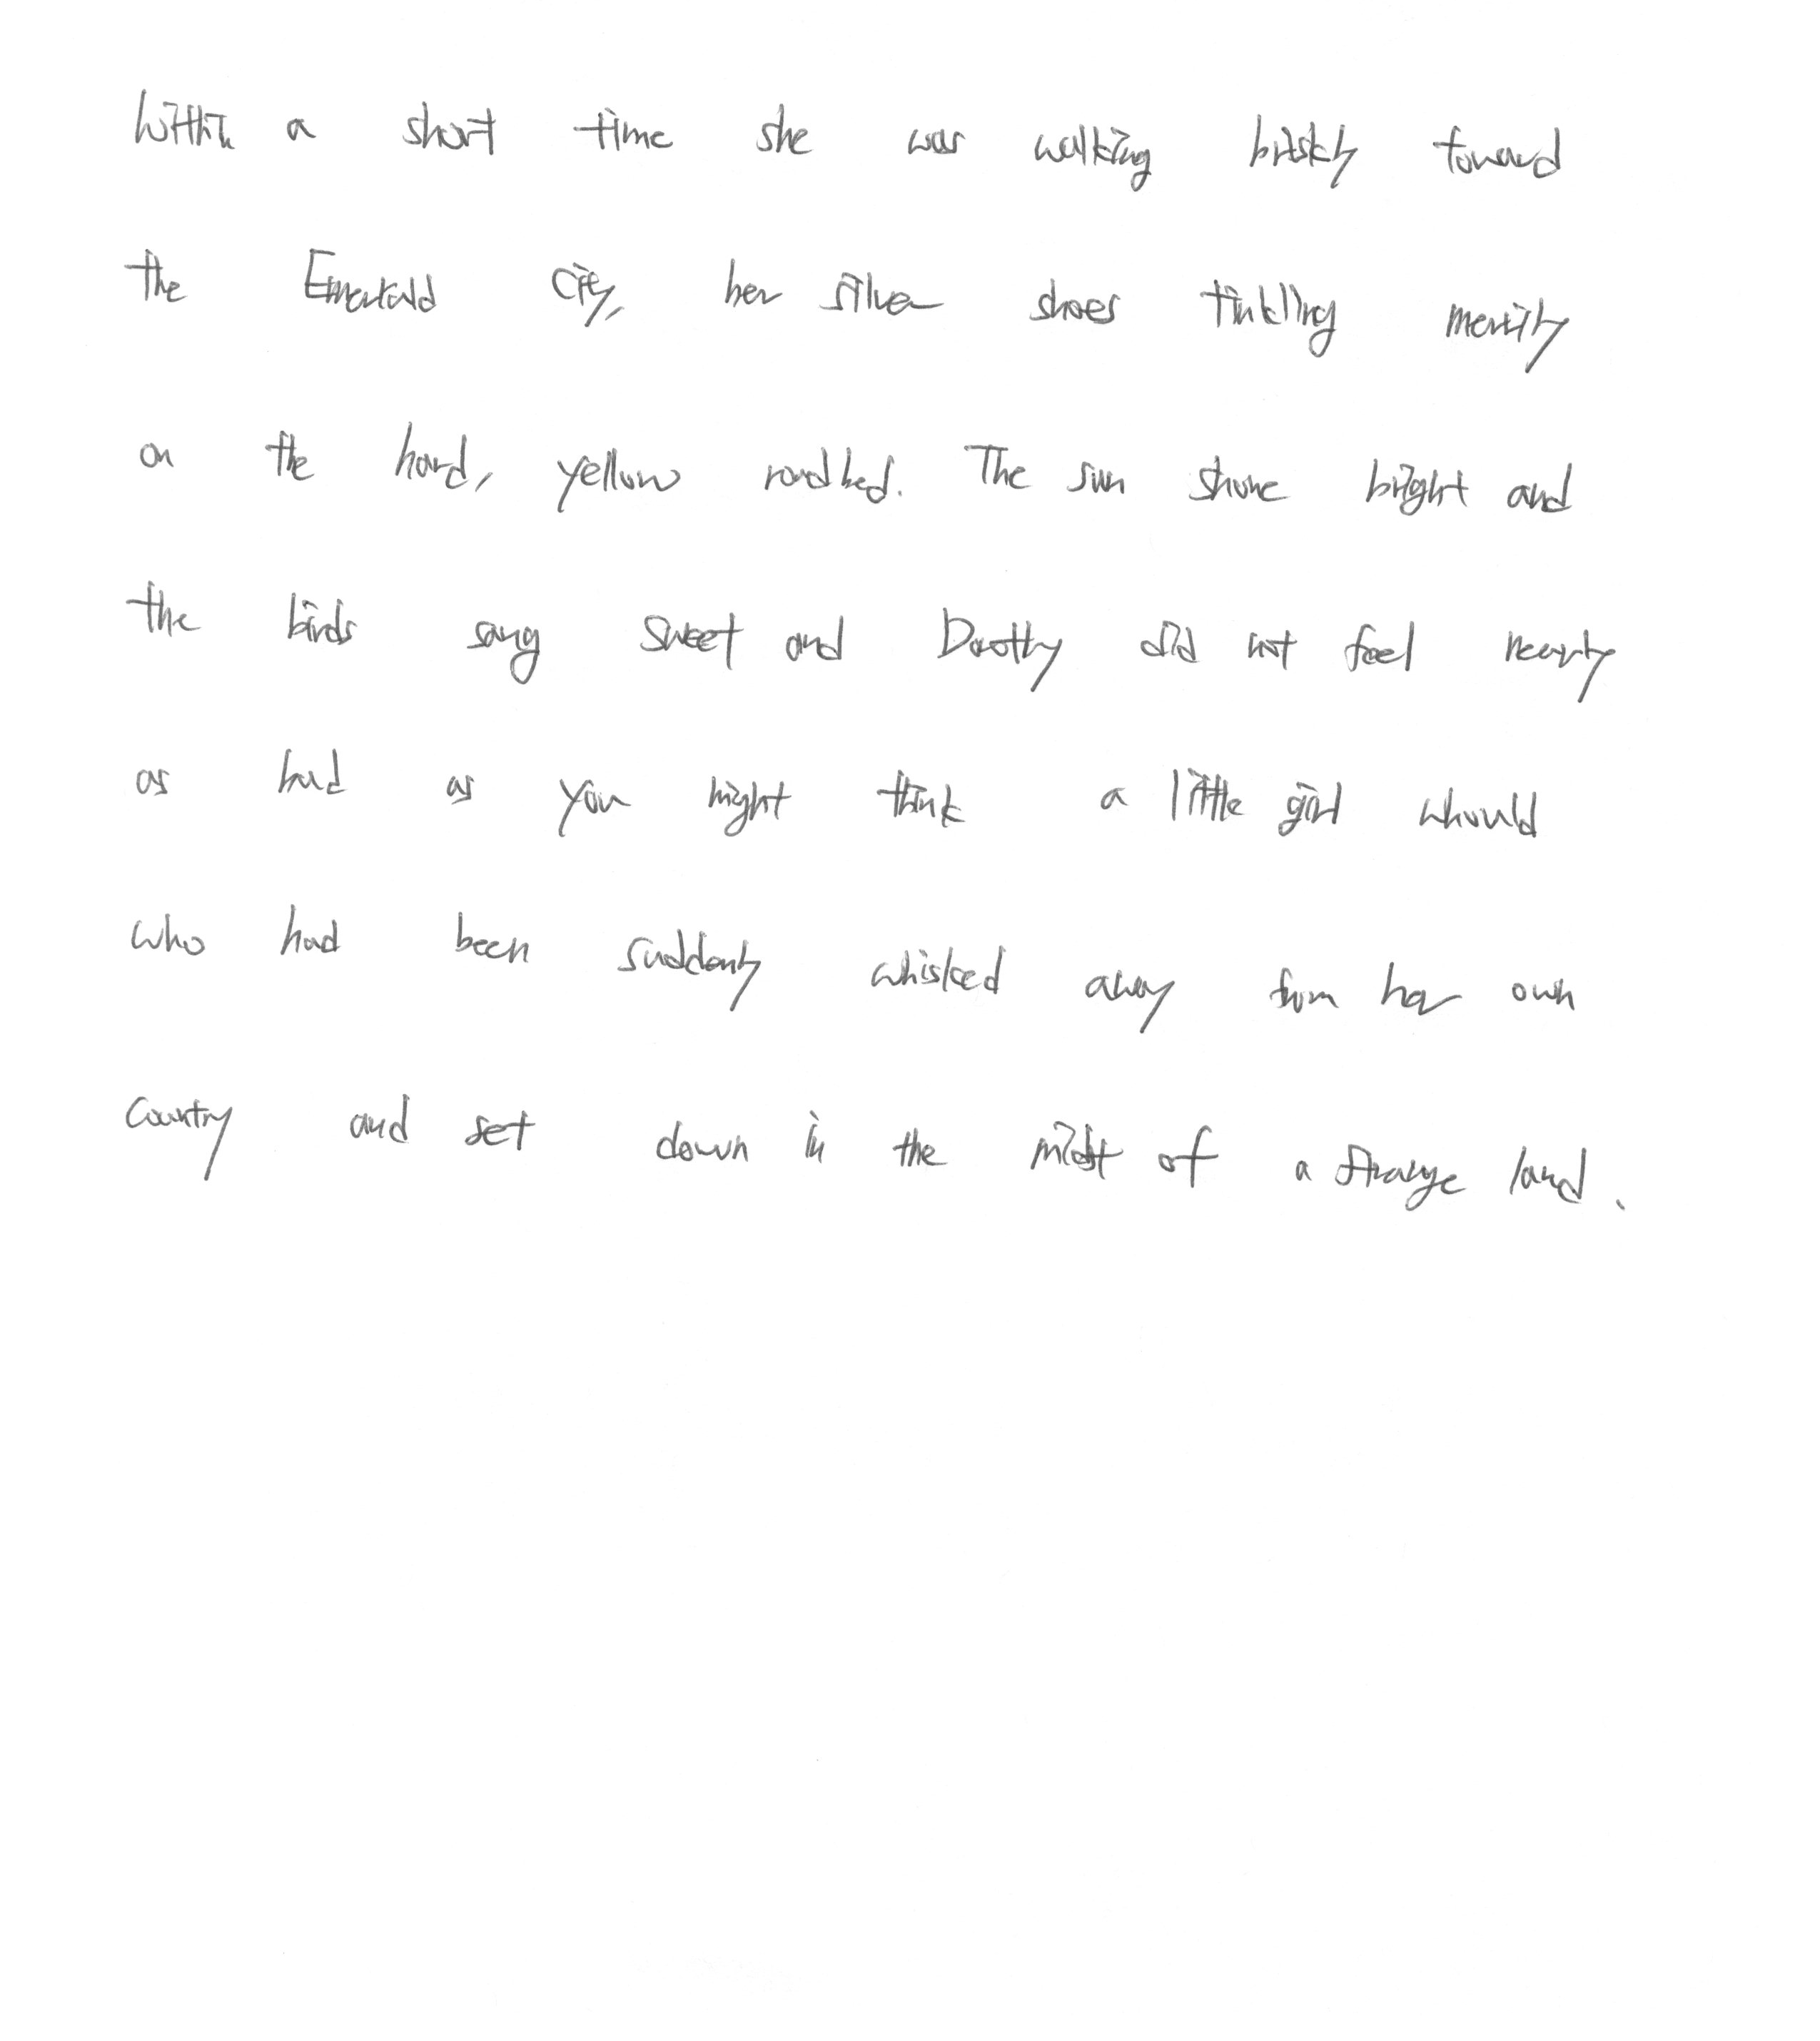 Within a short time she was walking briskly toward
the Emerald City, her silver shoes tinkling merrily
on the hard, yellow roadbed. The sun shone bright and
the birds sang sweet and Dorothy did not feel nearly
as bad as you might think a little girl whould
who had been suddenly whisked away from her own
country and set down in the midst of a strange land.